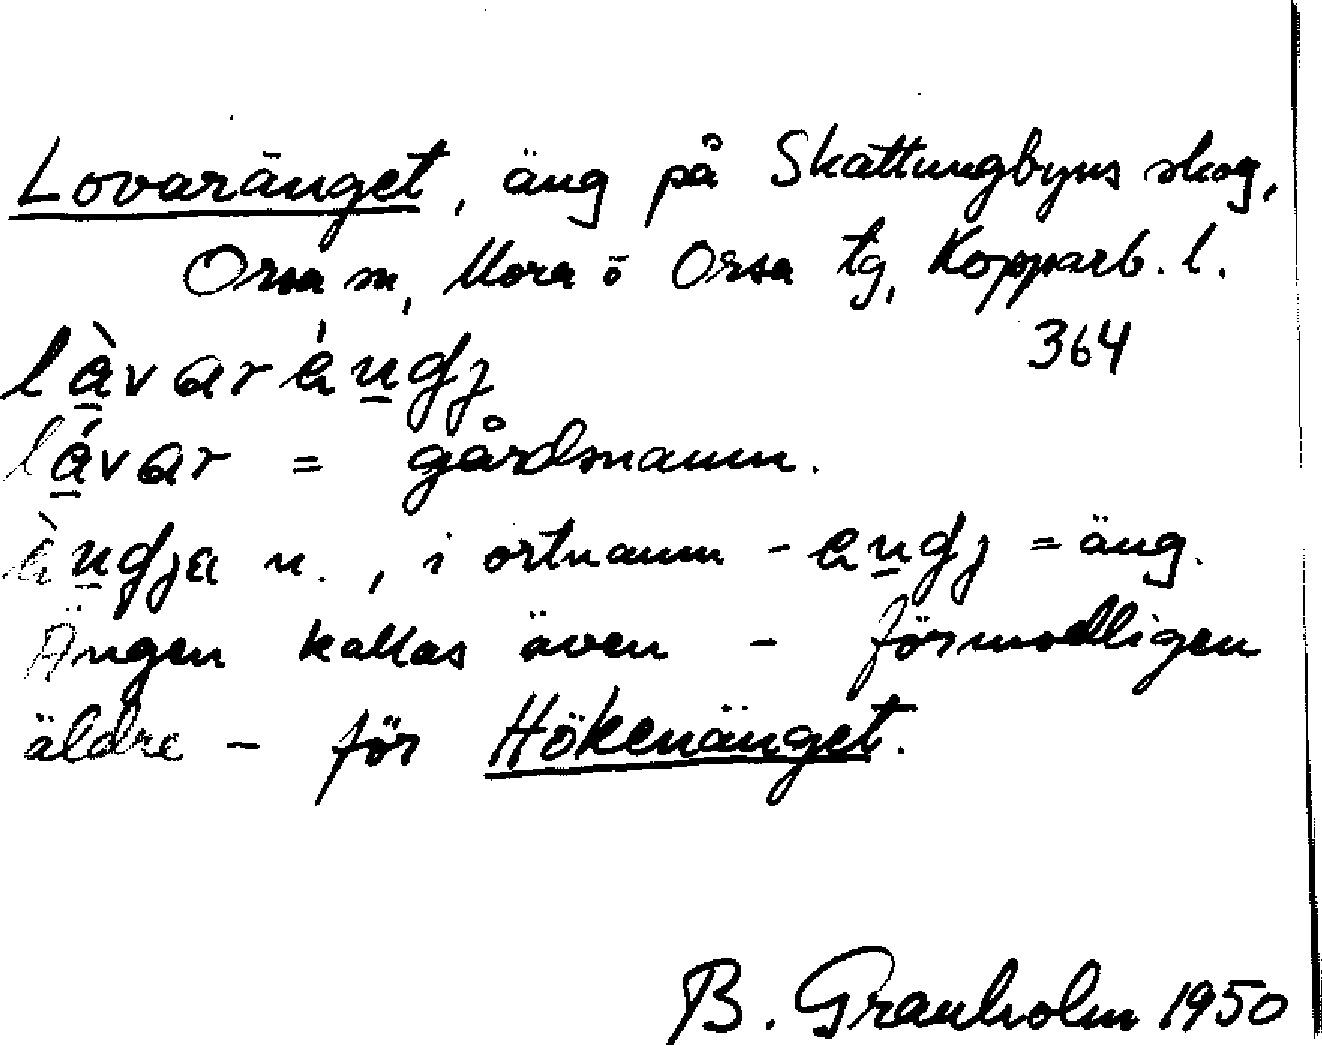 Lovaränget, äng på Skattungbyns skog,
Orsa sn, Mora o Orsa tg, Kopparb. l.
364
là̱varèṉdj
là̱var = gårdsnamn.
èṉdja n., i ortnamn - eṉdj = äng.
Ängen kallas även - förmodligen
äldre - för Hökenänget.
B. Granholm 1950